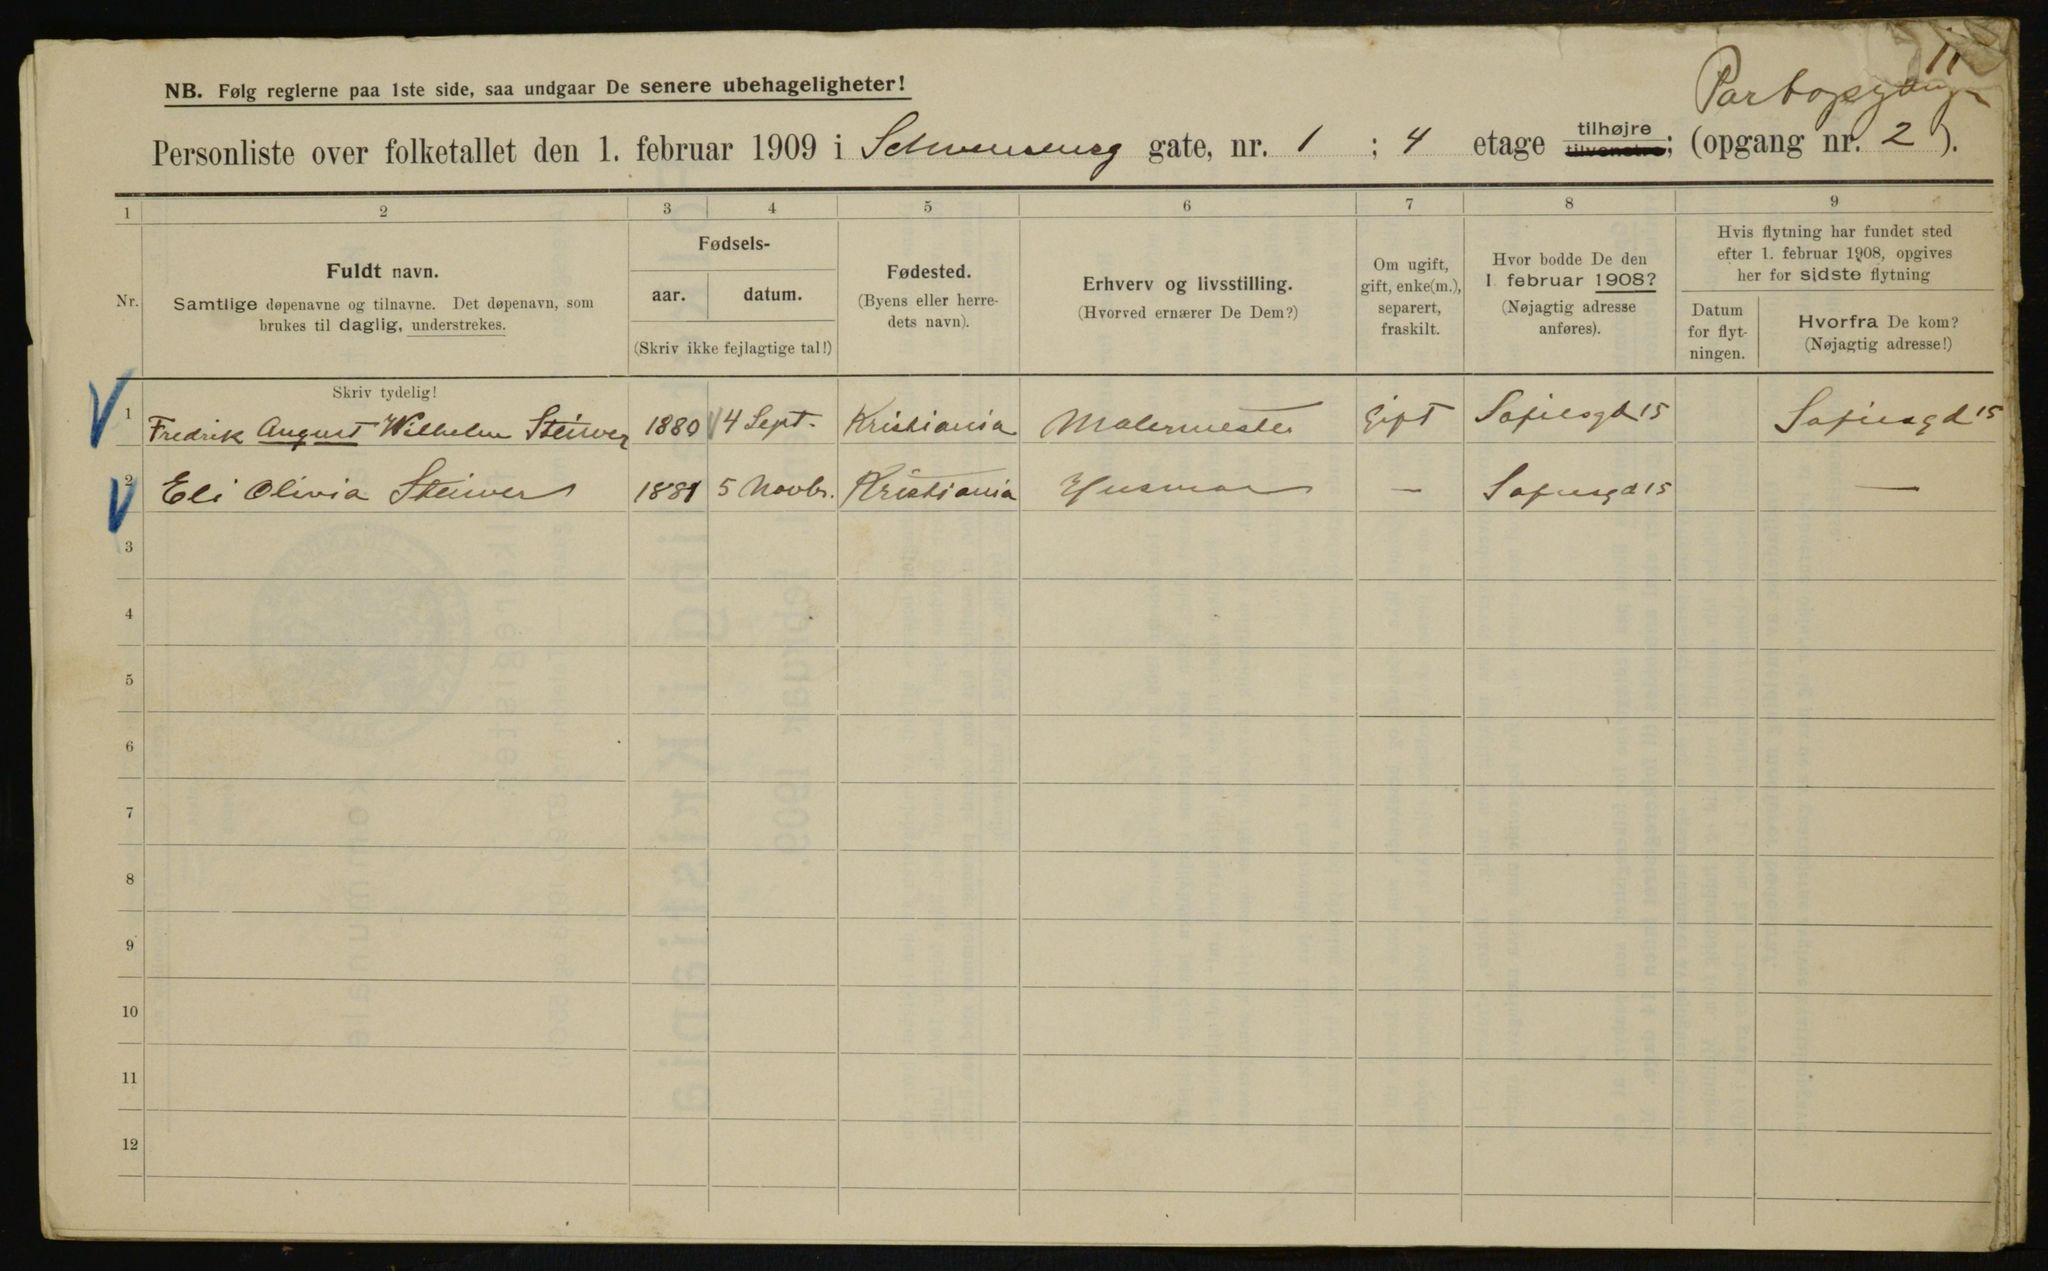 11
Portopgang
NB. Følg reglerne paa 1ste side, saa undgaar De senere ubehageligheter!
Personliste over folketallet den 1. februar 1909 i Schwensensg gate, nr. 1 ; 4 etage tilhøjre tilvenstre; (opgang nr. 2 ).
1 2 3 4 5 6 7 8 9
Nr.
Fuldt navn.
Samtlige døpenavne og tilnavne. Det døpenavn, som
brukes til daglig, understrekes.
Fødsels-
aar. datum.
(Skriv ikke fejlagtige tal!)
Fødested.
(Byens eller herre-
dets navn).
Erhverv og livsstilling.
(Hvorved ernærer De Dem?)
Om ugift,
gift, enke(m.),
separert,
fraskilt.
Hvor bodde De den
1. februar 1908?
(Nøjagtig adresse
anføres).
Hvis flytning har fundet sted
efter 1. februar 1908, opgives
her for sidste flytning
Datum
for flyt-
ningen.
Hvorfra De kom?
(Nøjagtig adresse!)
Skriv tydelig!
1 Fredrik August Wilhelm Steiwer 1880 4 Sept. Kristiania Malermester Gift Sofiesgd 15 Sofiesgd 15
2 Eli Olivia Steiwer 1881 5 Novbr. Kristiania Husmor — Sofiesgd 15 —
3
4
5
6
7
8
9
10
11
12